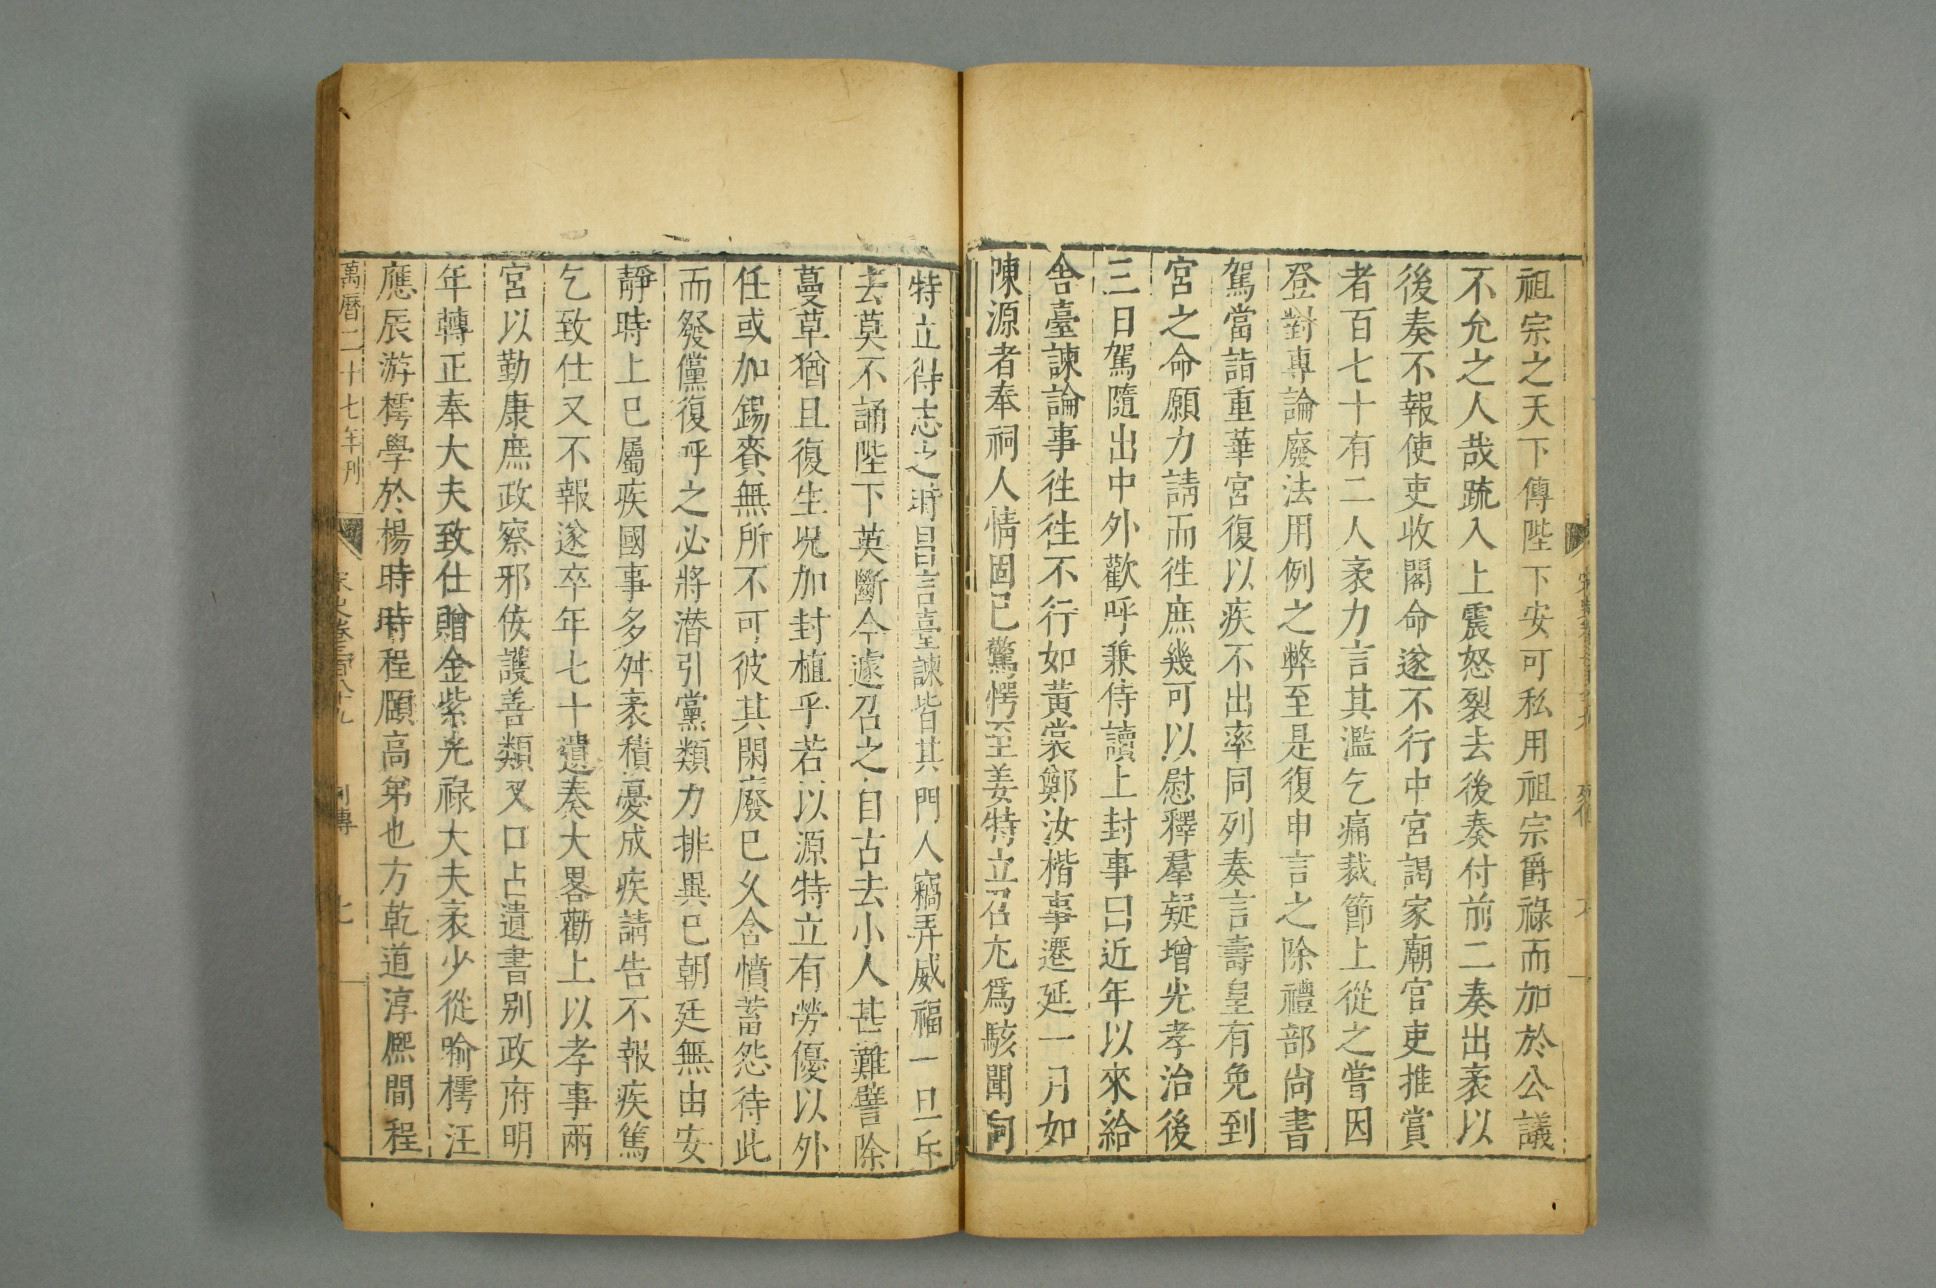 祖宗之天下傳陛下安可私用祖宗爵祿而加於公議
不允之人哉疏入上震怒裂去後奏付前二奏出袤以
後奏不報使吏收閣命遂不行中宮謁家廟官吏推賞
者百七十有二人袤力言其濫乞痛裁節上從之嘗因
登對專論廢法用例之弊至是復申言之除禮部尚書
駕當詣重華宮復以疾不出率同列奏言壽皇有免到
宮之命願力請而徃庶幾可以慰釋羣疑增光孝治後
三日駕隨出中外歡呼兼侍讀上封事曰近年以來給
舍臺諫論事徃徃不行如黃裳鄭汝楷事遷延一月如
陳源者奉祠人情固已驚愕至姜特立召尤爲駭聞向
特立得志之時昌言臺諫皆其門人竊弄威福一旦斥
去莫不誦陛下英斷今遽召之自古去小人甚難譬除
蔓草猶且復生况加封植乎若以源特立有勞優以外
任或加錫賚無所不可彼其閑廢已久含憤蓄怨待此
而發儻復呼之必將潜引黨類力排異已朝廷無由安
靜時上已屬疾國事多舛袤積憂成疾請告不報疾篤
乞致仕又不報遂卒年七十遺奏大畧勸上以孝事兩
宮以勤康庶政察邪侫護善類又口占遺書别政府明
年轉正奉大夫致仕贈金紫光祿大夫袤少從喻樗汪
應辰游樗學於楊時時程頤高弟也方乾道淳熈間程
萬曆二十七年刊
宋史卷三百八十九
列傳
七